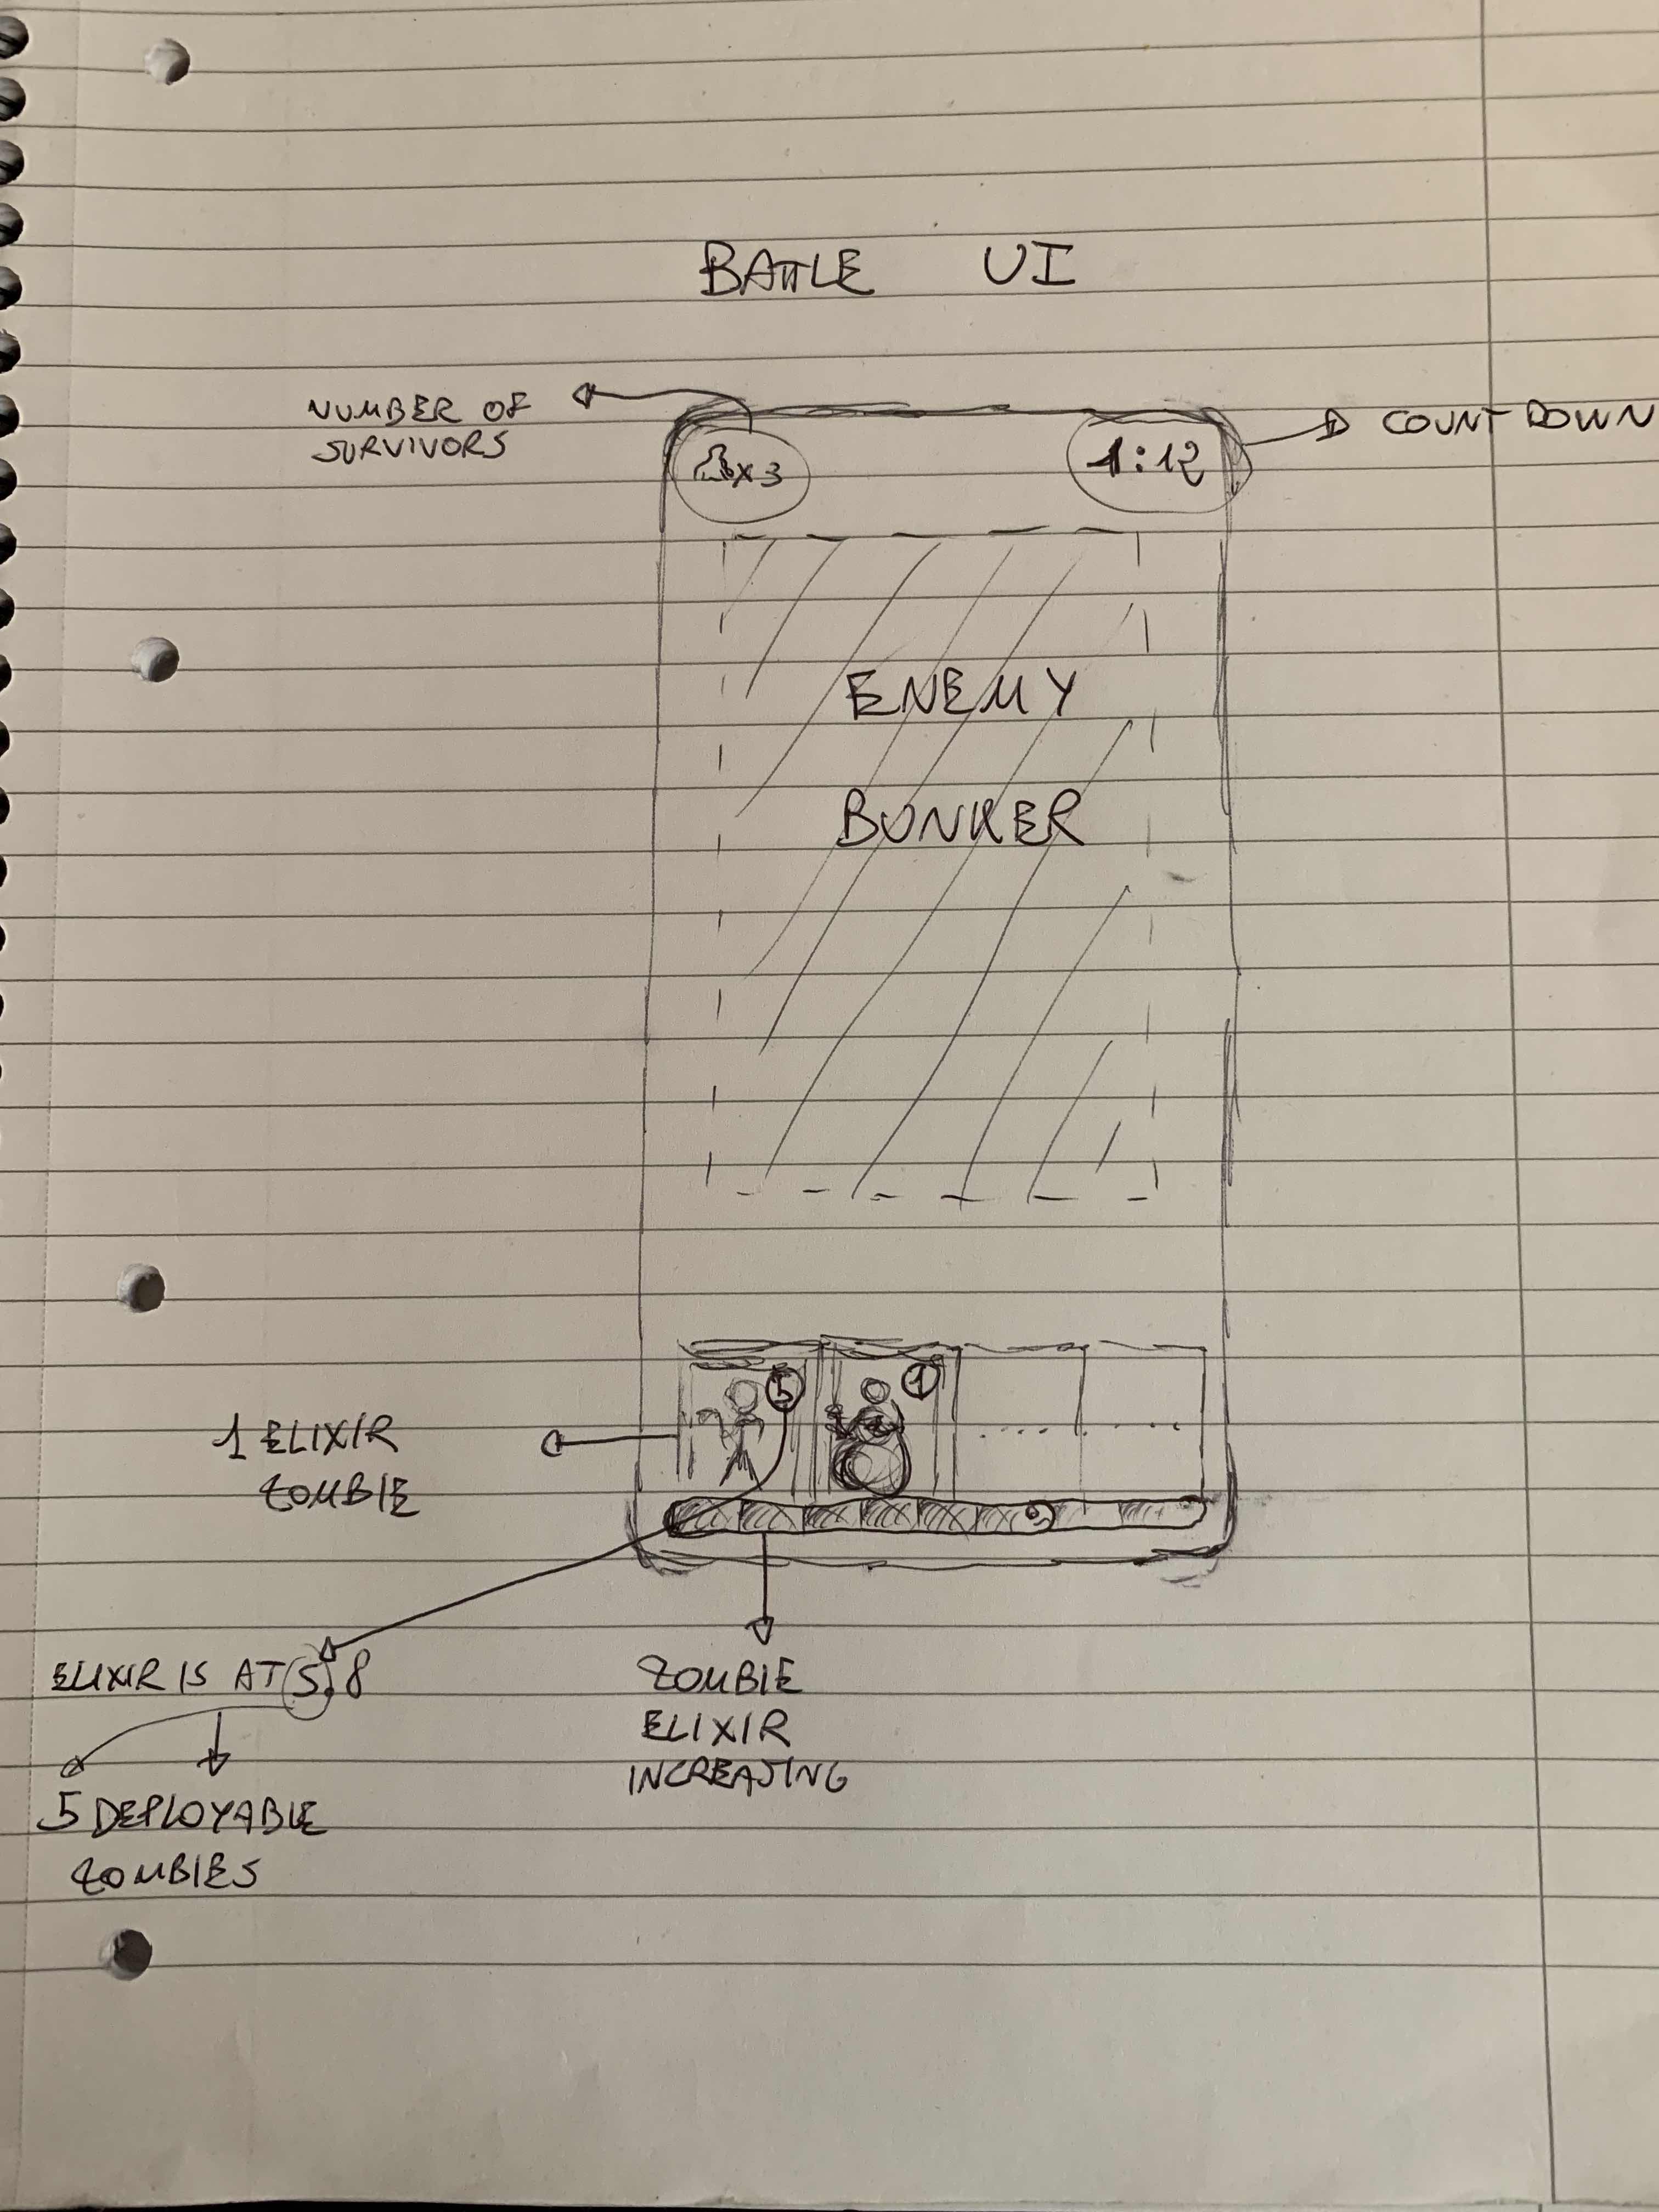 BATTLE UI
NUMBER OF
SURVIVORS
COUNT DOWN
x3
1:12
ENEMY
BUNKER
5
1
1 ELIXIR
ZOMBIE
ELIXIR IS AT 5.8
5 DEPLOYABLE
ZOMBIES
ZOMBIE
ELIXIR
INCREASING